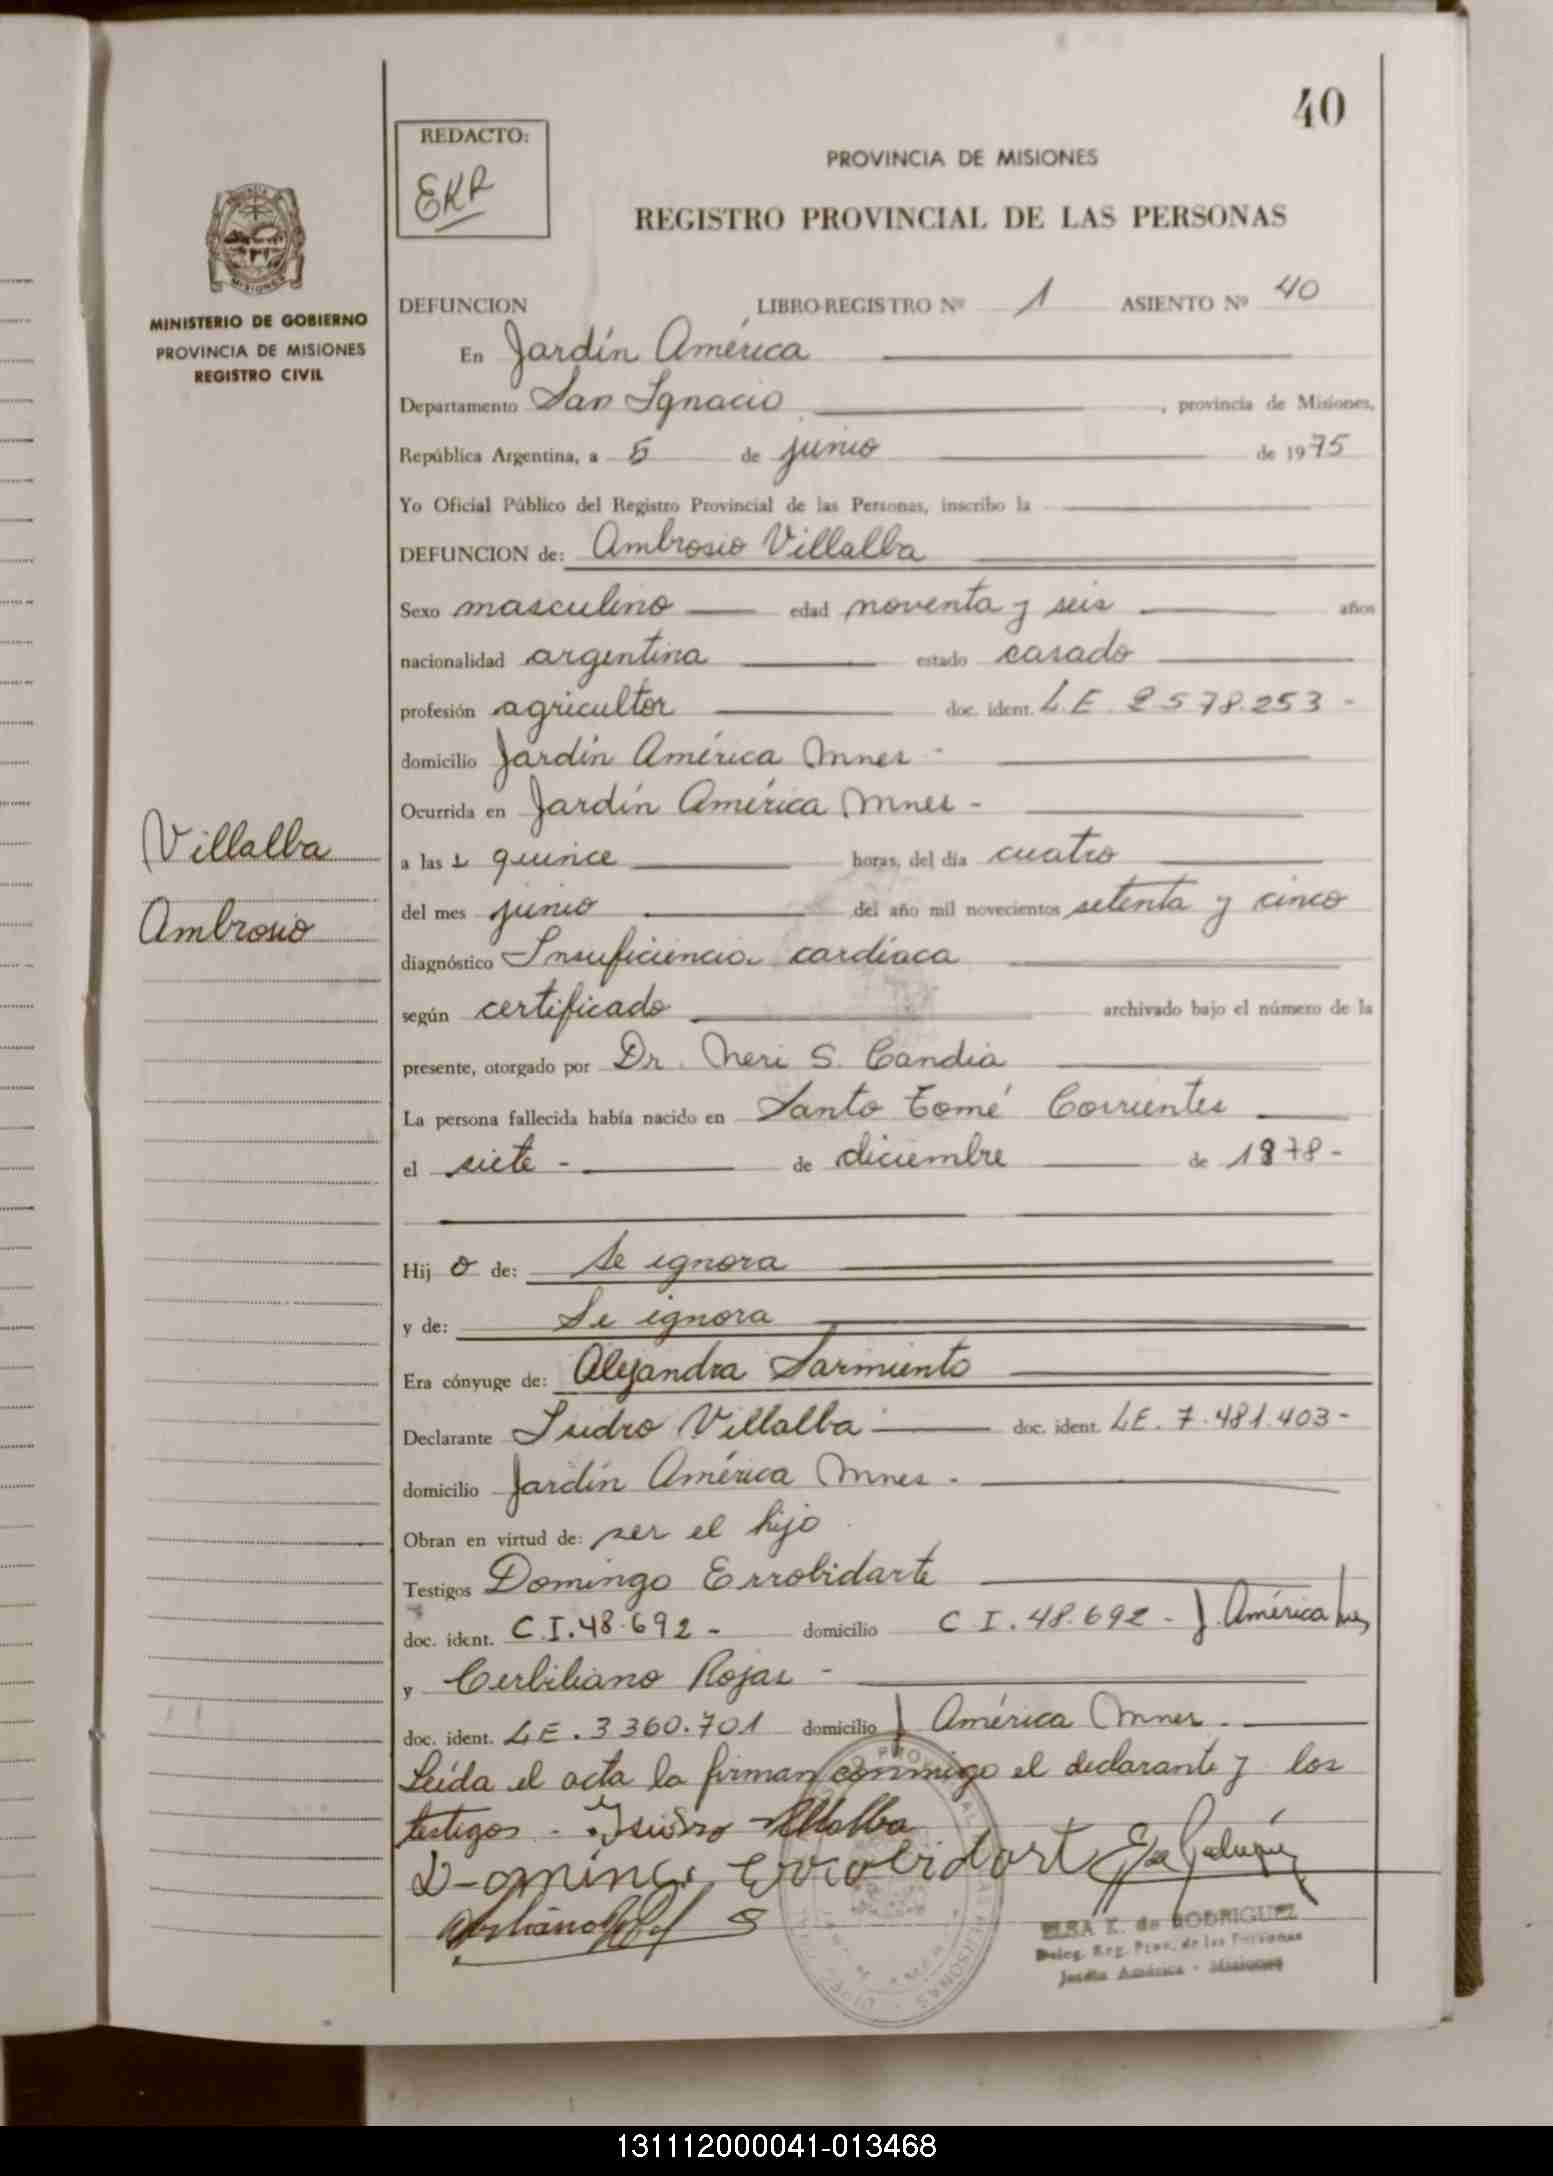 40
REDACTO:
EKR
PROVINCIA DE MISIONES
REGISTRO PROVINCIAL DE LAS PERSONAS
MISIONES
MINISTERIO DE GOBIERNO
PROVINCIA DE MISIONES
REGISTRO CIVIL
DEFUNCION LIBRO-REGISTRO Nº 1 ASIENTO Nº 40
En Jardín América
Departamento San Ignacio, provincia de Misiones,
República Argentina, a 5 de junio de 1975
Yo Oficial Público del Registro Provincial de las Personas, inscribo la
DEFUNCION de: Ambrosio Villalba
Sexo masculino edad noventa y seis años
nacionalidad argentina estado casado
profesión agricultor doc. ident. L.E. 2578.253-
domicilio Jardín América Mnes-
Ocurrida en Jardín América Mnes-
Villalba
a las quince horas, del día cuatro
Ambrosio
del mes junio del año mil novecientos setenta y cinco
diagnóstico Insuficiencia cardíaca
según certificado archivado bajo el número de la
presente, otorgado por Dr. Neri S. Candia
La persona fallecida había nacido en Santo Tomé Corrientes
el siete - de diciembre de 1878-
Hij o de: Se ignora
y de: Se ignora
Era cónyuge de: Alejandra Sarmiento
Declarante Isidro Villalba doc. ident. LE. 7.481.403-
domicilio Jardín América Mnes.
Obran en virtud de: ser el hijo.
Testigos Domingo Errobidarte
doc. ident. C.I.48.692- domicilio C I.48.692- J. América
y Cerbiliano Rojas-
doc. ident. LE.3360.701 domicilio J América Mnes.
Leída el acta la firman conmigo el declarante y los
testigos. Isidro Villalba
ELSA K. de RODRIGUEZ
Deleg. Reg. Prov. de las Personas
Jardín América - Misiones
131112000041-013468